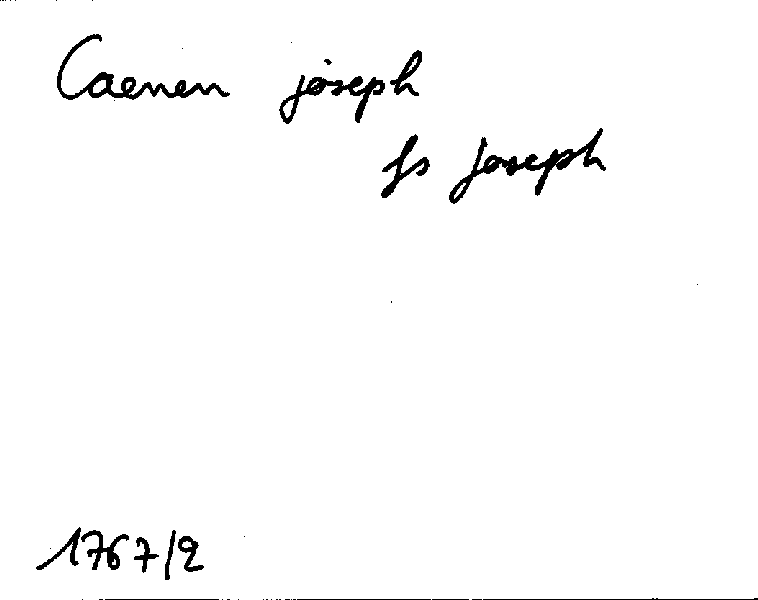 Caenen joseph
fs joseph
1767/2